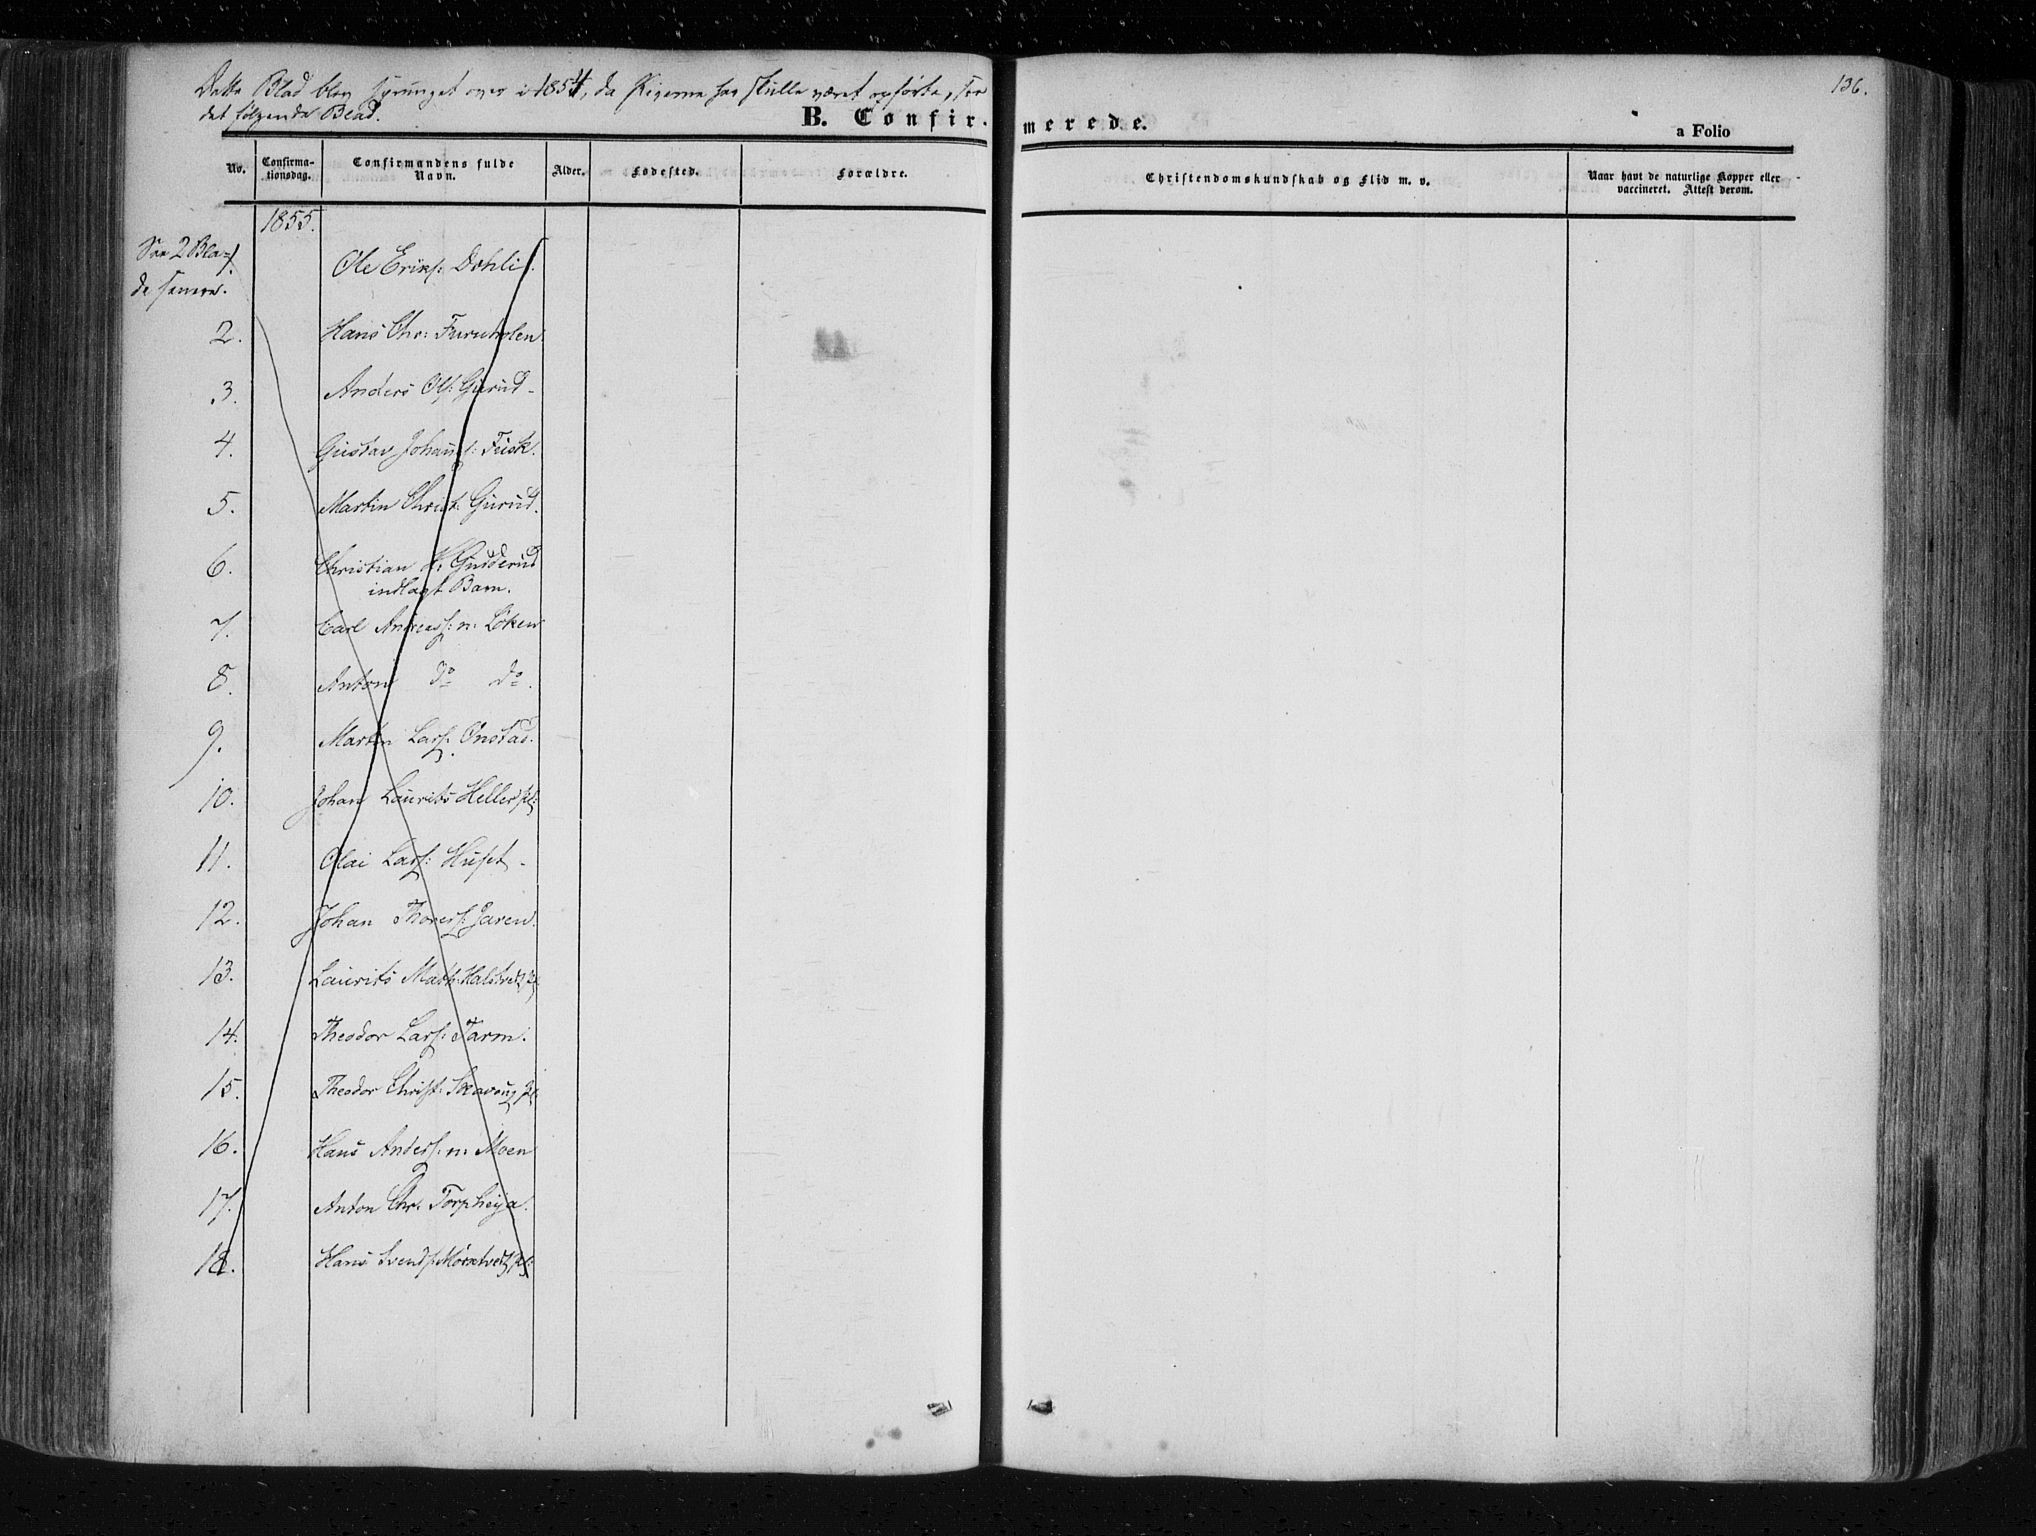 Dette Blad blev sprunget over i 1854, da Pigerne her skulle været opførte, see
det følgende Blad.
136.
B. Confir- merede.
a Folio
No.
Confirma-
tionsdag.
Confirmandens fulde
Navn.
Alder.
Fødested.
Forældre.
Christendomskundskab og Flid m. v.
Naar havt de naturlige Kopper eller
vaccineret. Attest derom.
1855.
See 2 Bla-
de senere.
Ole Eriks: Dohli.
2. Hans Chr: Furuholen
3. Anders Ols: Gurud
4. Gustav Johans: Fusk.
5. Martin Christ: Gurud.
6. Christian H: Gudderud
indlagt Barn.
7. Carl Andreass: n: Løken
8. Anton do do.
9. Martin Lars: Onstad.
10. Johan Laurits Heller
11. Olai Lars: Huset
12. Johan Thores: Jaren.
13. Laurits Math:
14. Theodor Lars: Tarm.
15. Theodor Christ: Skavoug
16. Hans Anders: n: Moen
17. Anton Chr. Torpheija.
18. Hans Svends: